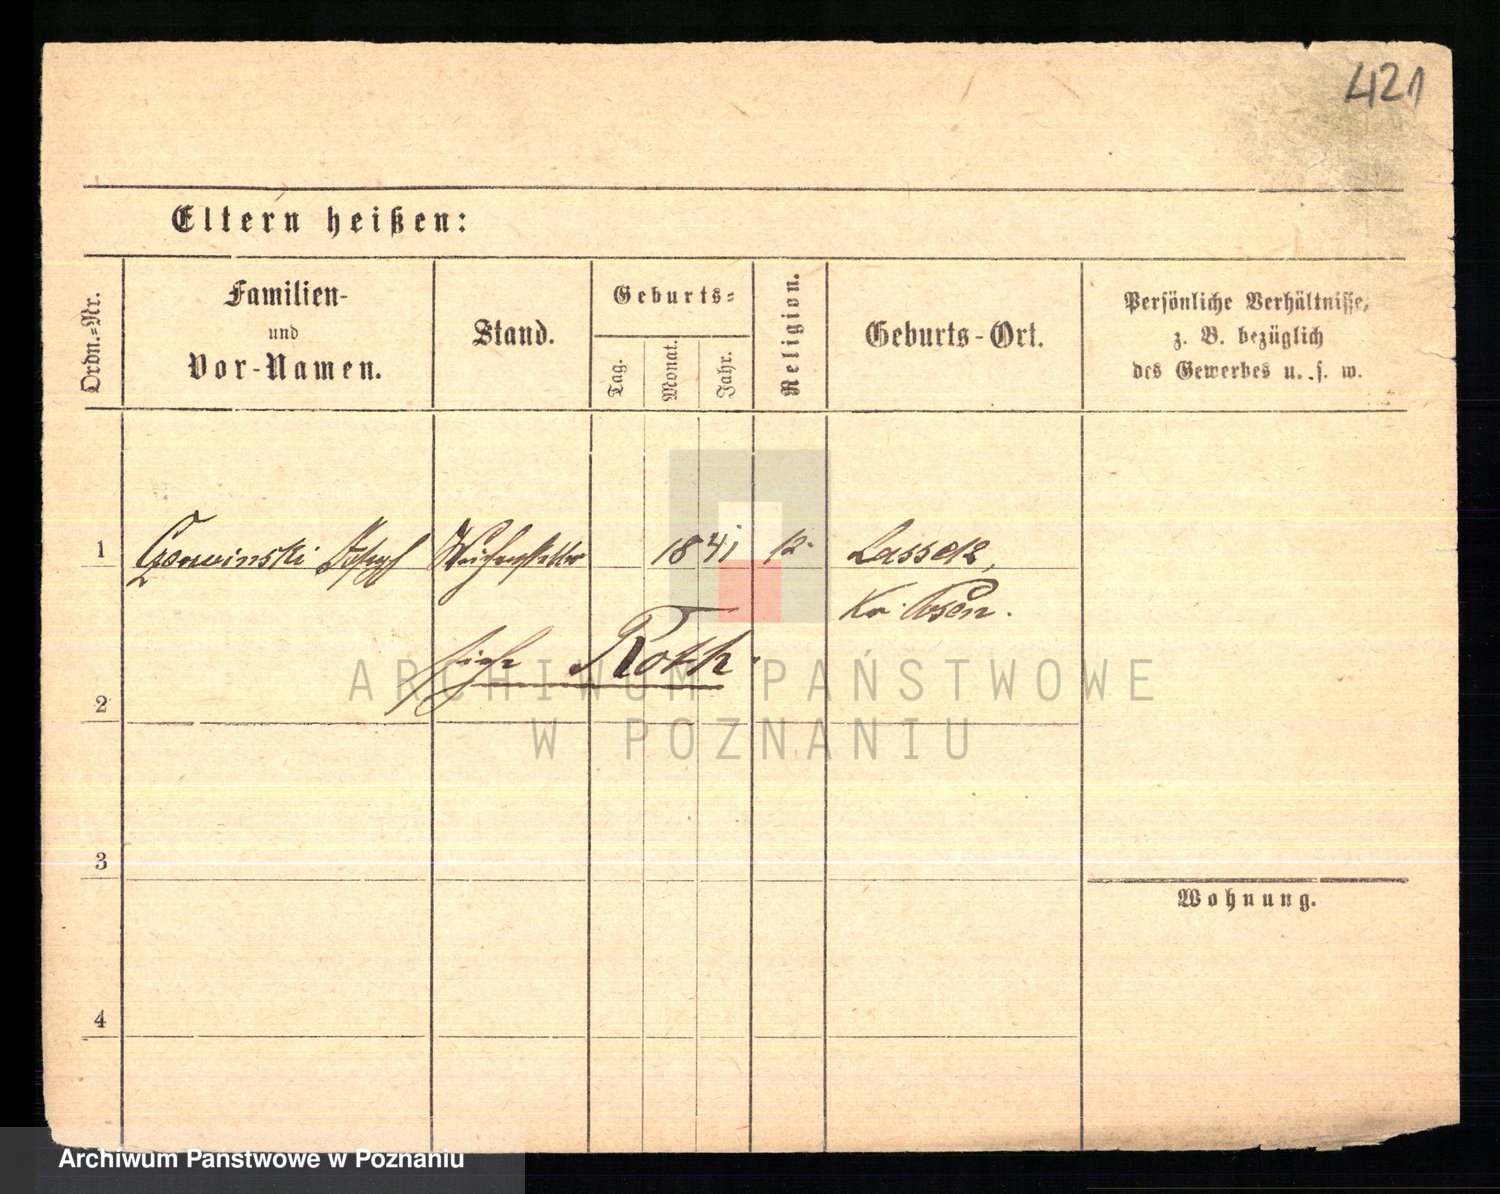 421
Eltern heißen:
Ordn.-Nr.
Familien-
und
Vor-Namen.
Stand.
Geburts-
Tag.
Monat.
Jahr.
Religion.
Geburts-Ort.
Persönliche Verhältnisse,
z. B. bezüglich
des Gewerbes u. s. w.
1 Joseph Weichensteller 1841 Lassek,
Kr. Posen.
siehe Roth
2
3
4
Wohnung.
ARCHIWUM PAŃSTWOWE
W POZNANIU
Archiwum Państwowe w Poznaniu